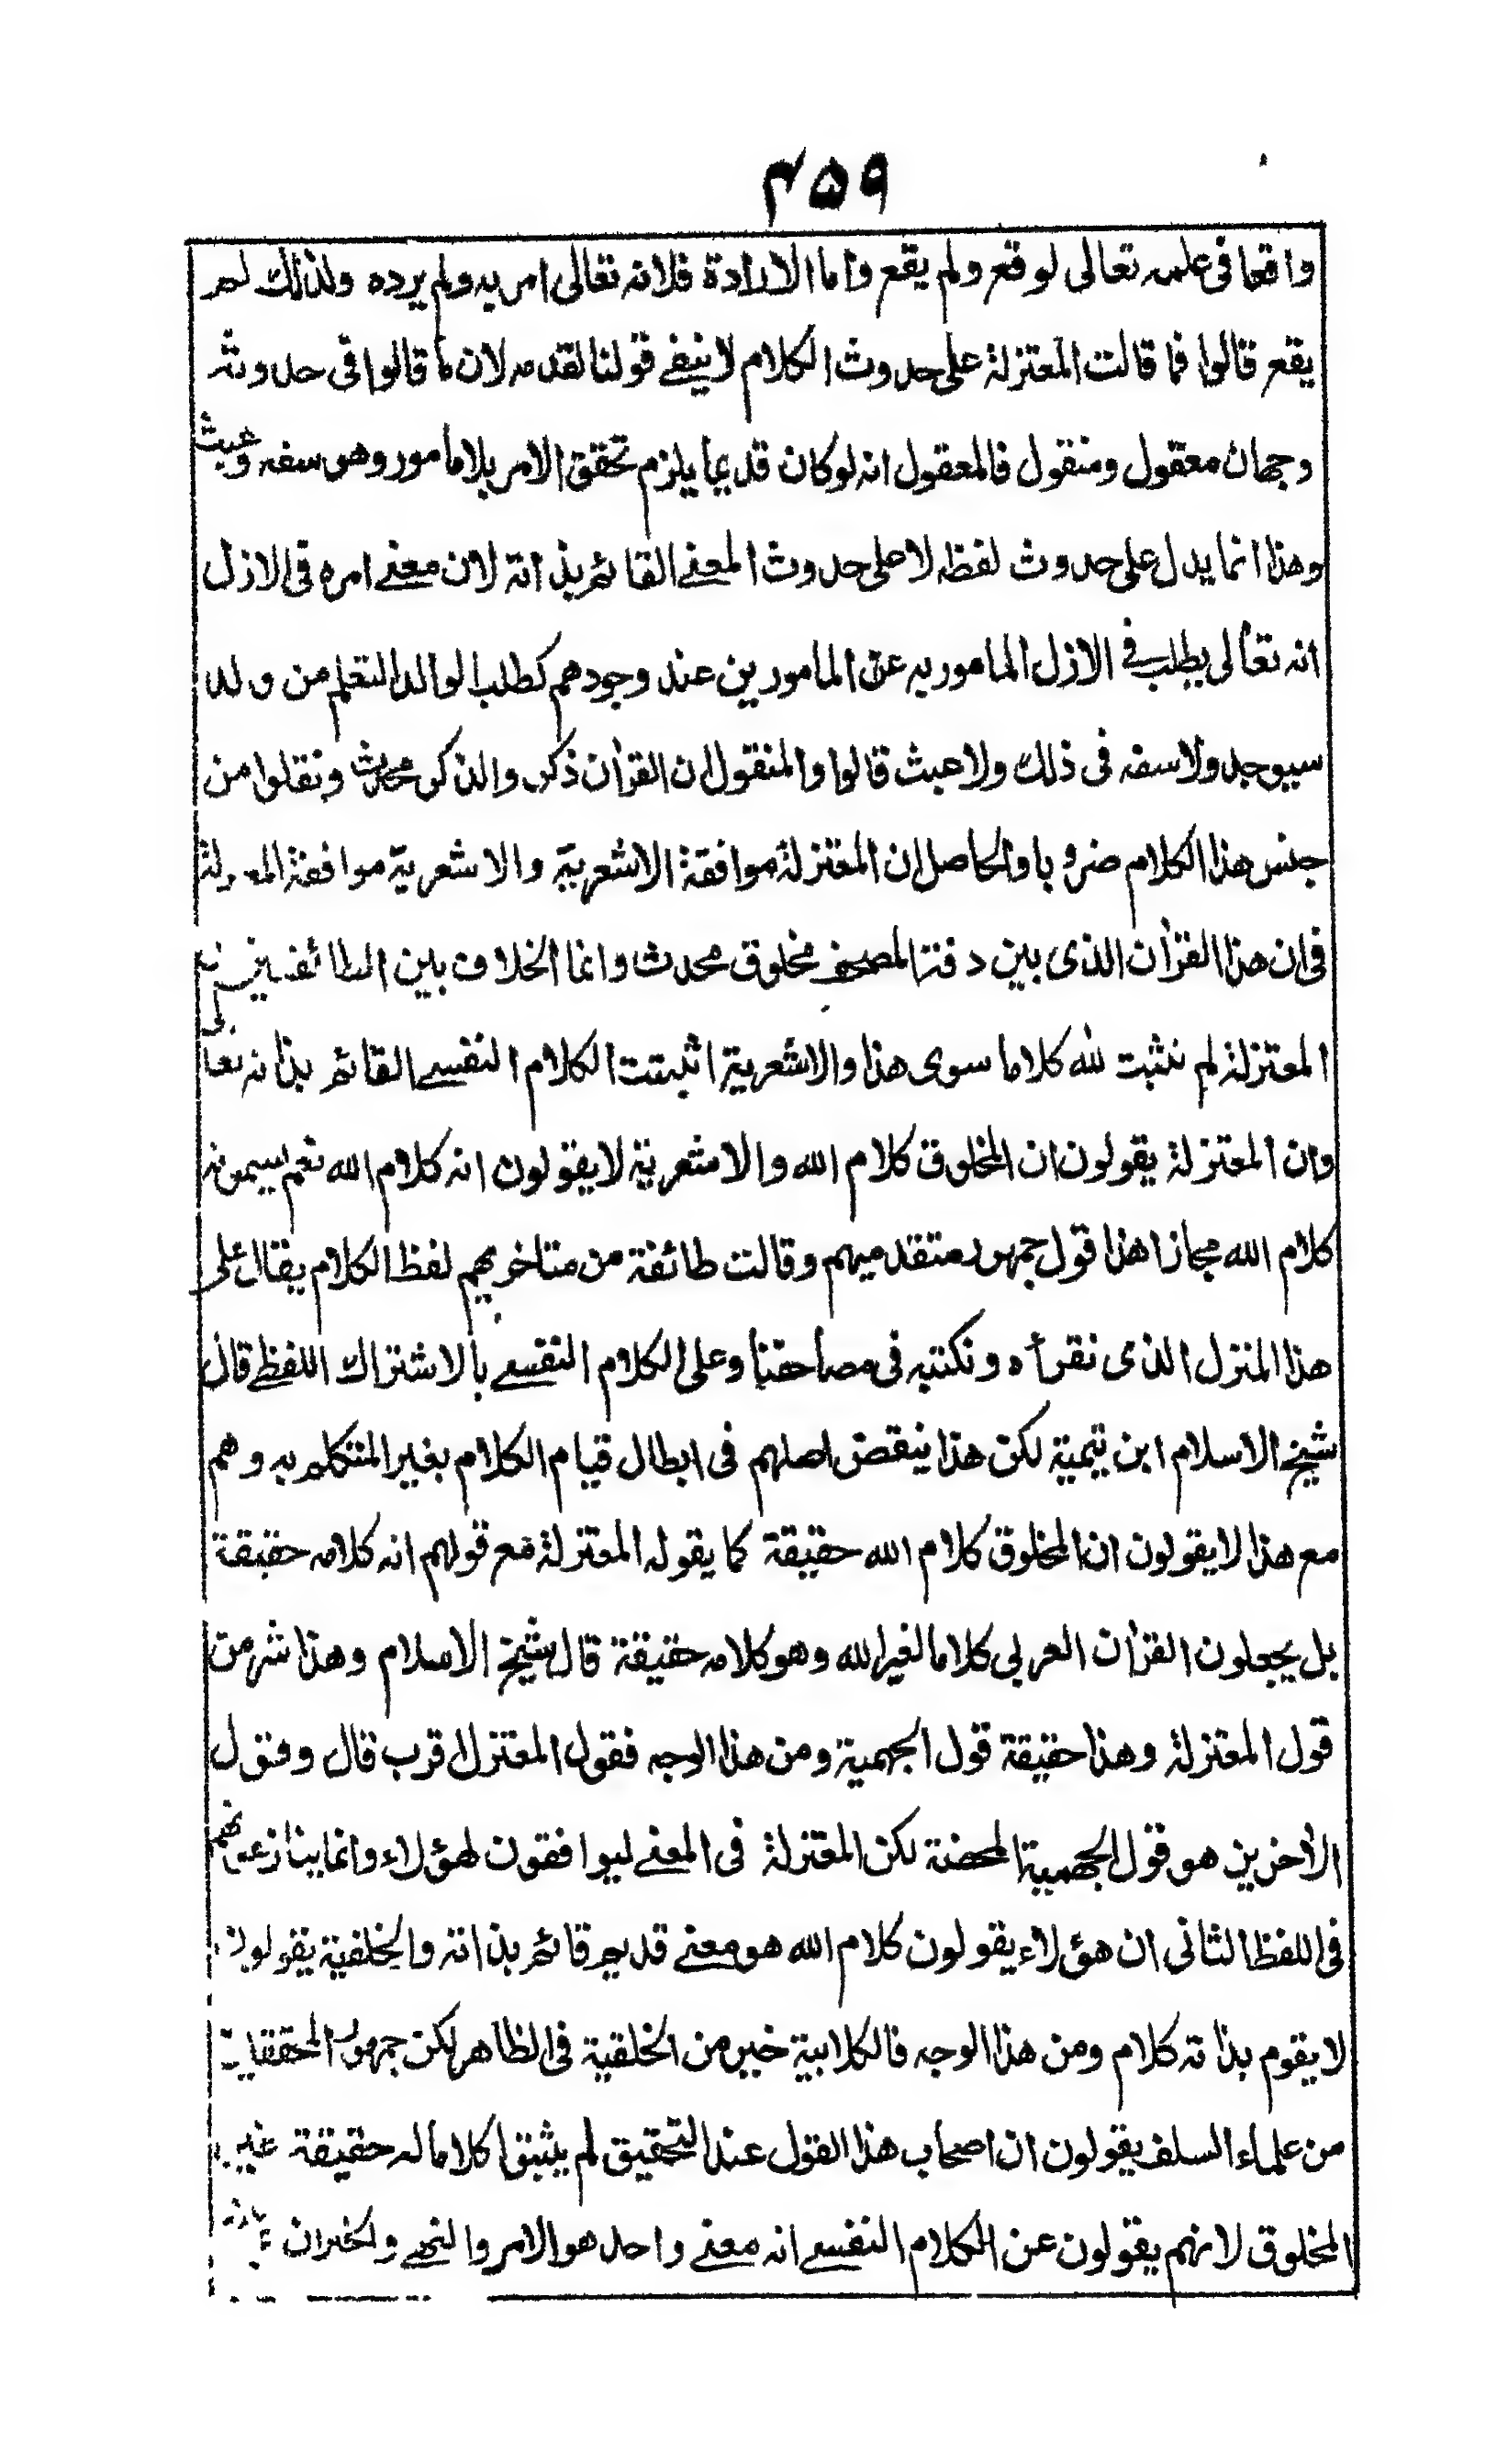 ۴۵۹
واقعا فى علمه تعالى لوقع ولم يقع واما الارادة فلانه تعالى امر به ولم يرده ولذلك لم
يقع قالوا فما قالت المعتزلة على حدوث الكلام لا ينفے قولنا لقدمه لان ما قالوا فى حدوثه
وجهان معقول ومنقول فالمعقول انه لو كان قديما يلزم تحقق الامر بلا مامور وهو سفه وعبث
وهذا انما يدل على حدوث لفظه لا على حدوث المعنے القائم بذاته لان معنے امره فى الازل
انه تعالى يطلب فے الازل المامور به عن المامورين عند وجودهم كطلب الوالد التعلم من ولد
سيوجد ولا سفه فى ذلك ولا عبث قالوا والمنقول ان القرآن ذكر والذكر محدث ونقلوا من
جنس هذا الكلام ضروبا والحاصل ان المعتزلة موافقة الاشعرية والاشعرية موافقة المعتزلة
فى ان هذا القرآن الذى بين دفتے المصحف مخلوق محدث وانما الخلاف بين الطائفتين
المعتزلة لم تثبت لله كلاما سوى هذا والاشعرية اثبتت الكلام النفسے القائم بذاته تعالى
وان المعتزلة يقولون ان المخلوق كلام الله والاشعرية لا يقولون انه كلام الله نعم يسمونه
كلام الله مجازا هذا قول جمهور متقدميهم وقالت طائفة من متاخريهم لفظ الكلام يقال على
هذا المنزل الذى نقرأه ونكتبه فى مصاحفنا وعلى الكلام النفسے بالاشتراك اللفظے قال
شيخ الاسلام ابن تيمية لكن هذا ينقض اصلهم فى ابطال قيام الكلام بغير المتكلم به وهم
مع هذا لا يقولون ان المخلوق كلام الله حقيقة كما يقوله المعتزلة مع قولهم انه كلامه حقيقة
بل يجعلون القرآن العربى كلاما لغير الله وهو كلامه حقيقة قال شيخ الاسلام وهذا شر من
قول المعتزلة وهذا حقيقة قول الجهمية ومن هذا الوجه فقول المعتزلة اقرب قال وقول
الآخرين هو قول الجهمية المحضة لكن المعتزلة فى المعنے ليوافقون لهؤلاء وانما ينازعونهم
فى اللفظ الثانى ان هؤلاء يقولون كلام الله هو معنے قديم قائم بذاته والخلقية يقولون
لا يقوم بذاته كلام ومن هذا الوجه فالكلابية خير من الخلقية فى الظاهر لكن جمهور المحققين
من علماء السلف يقولون ان اصحاب هذا القول عند التحقيق لم يثبتوا كلاما له حقيقة غير
المخلوق لانهم يقولون عن الكلام النفسے انه معنے واحد هو الامر والنهے والخبر ان